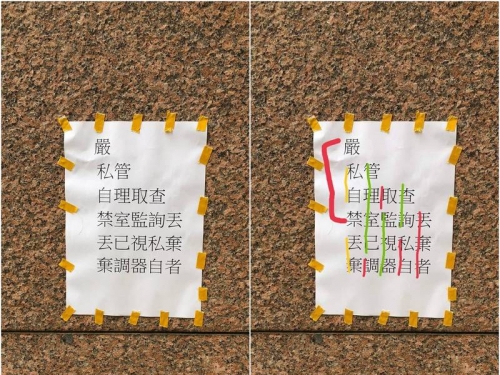 嚴
私管
自理取查
禁室監詢丟
丟已視私棄
棄調器自者
嚴
私管
自理取查
禁室監詢丟
丟已視私棄
棄調器自者